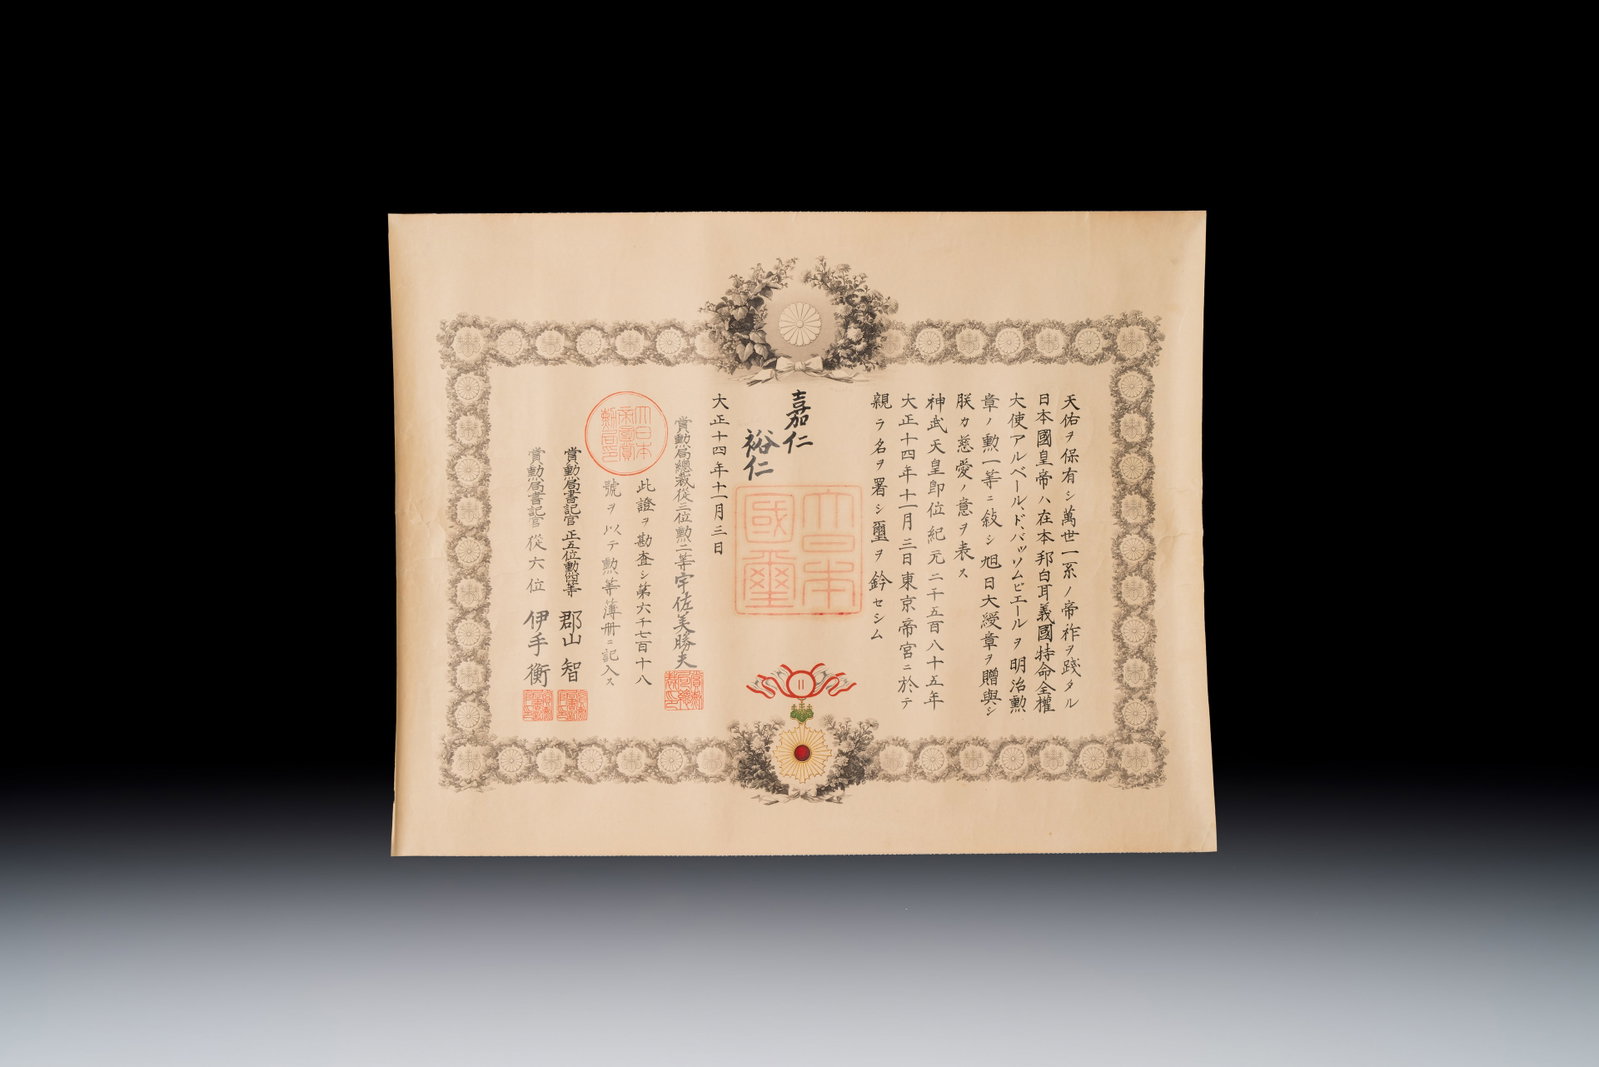 天佑ヲ保有シ萬世一系ノ帝祚ヲ踐タル
日本國皇帝ハ在本邦白耳義國特命全權
大使アルベール、ド、バッソムピエールヲ明治勲
章ノ勲一等ニ敍シ旭日大綬章ヲ贈與シ
朕カ慈愛ノ意ヲ表ス
神武天皇即位紀元二千五百八十五年
大正十四年十一月三日東京帝宮ニ於テ
親ラ名ヲ署シ璽ヲ鈐セシム
嘉仁
裕仁
大日本國璽
大正十四年十一月三日
賞勲局總裁從三位勲二等宇佐美勝夫
此證ヲ勘査シ第六千七百十八
號ヲ以テ勲等簿册ニ記入ス
大日本帝國賞勲局印
賞勲局書記官正五位勲四等 郡山智
賞勲局書記官從六位 伊手衡